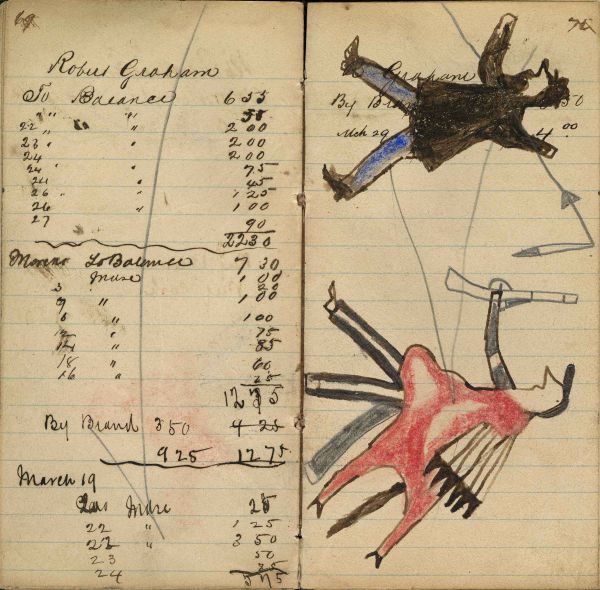 69
Robert Graham
To Balance 6 55
" " 55
22 " " 2 00
23 " " 2 00
24 2 00
24 " " 75
" 45
26 " " 1 25
26 " 1 00
27 90
22 30
Moreno To Balance 7 30
Muse 1 00
3 20
9 " 1 00
" 1 00
" 75
14 " 85
18 " 60
" 25
By Brand 3 50 4 25
9 25 12 75
March 19
Muse 25
22 " 1 25
22 " 3 50
23 50
24
5 75
Graham
By 50
Mch 29 4 00